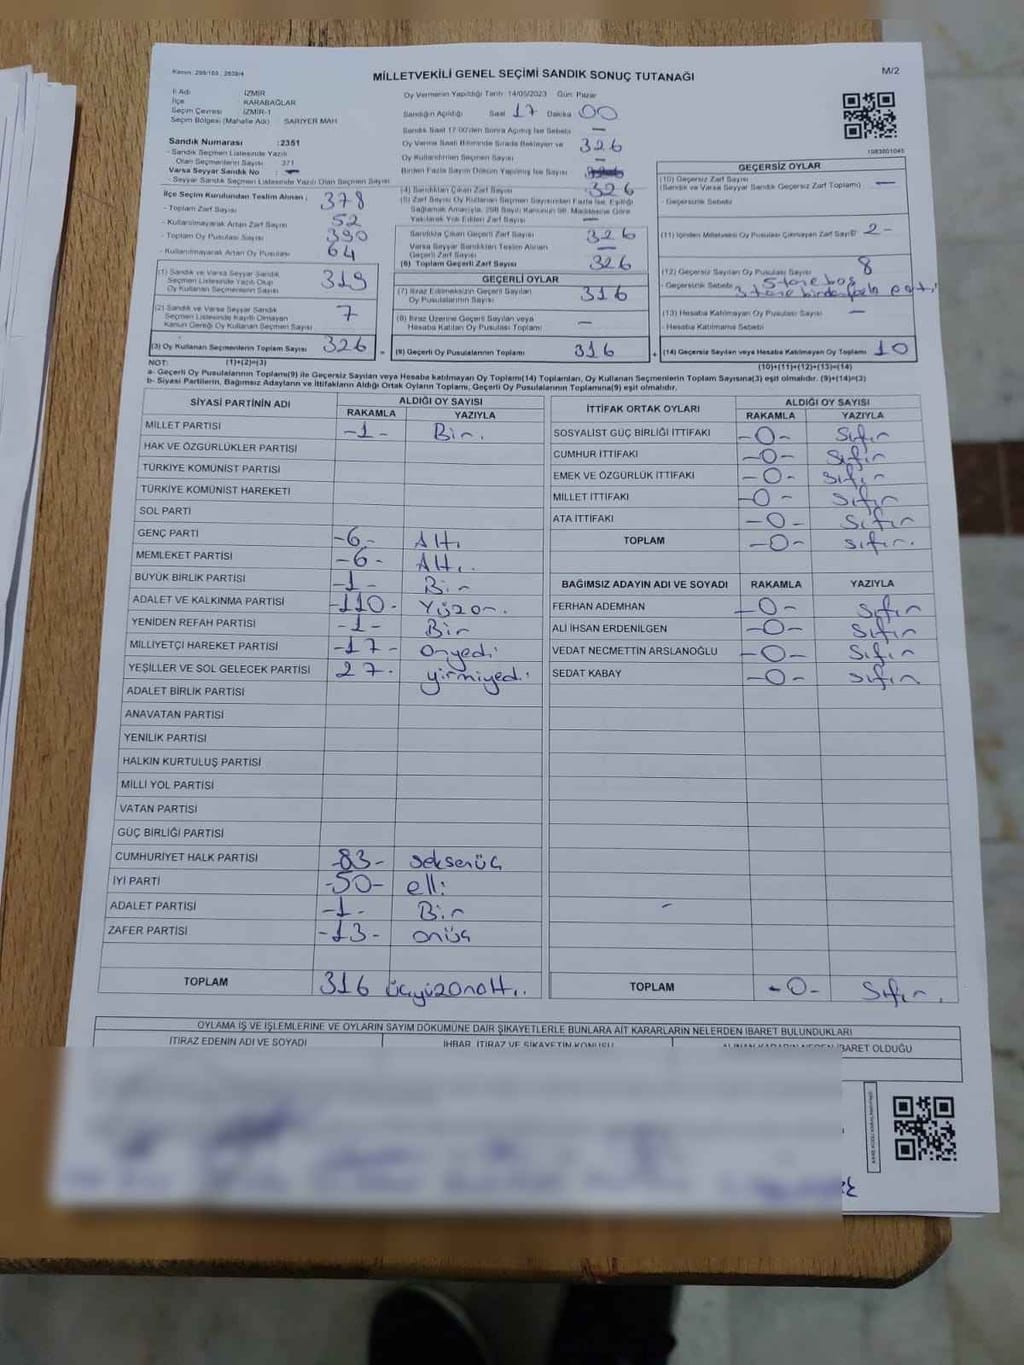 Kanun: 298/105 ; 2839/4
MİLLETVEKİLİ GENEL SEÇİMİ SANDIK SONUÇ TUTANAĞI
M/2
İl Adı : İZMİR
İlçe : KARABAĞLAR
Seçim Çevresi : İZMİR-1
Seçim Bölgesi (Mahalle Adı) : SARIYER MAH
Sandık Numarası :2351
- Sandık Seçmen Listesinde Yazılı
Olan Seçmenlerin Sayısı : 371
Varsa Seyyar Sandık No : -
- Seyyar Sandık Seçmen Listesinde Yazılı Olan Seçmen Sayısı
İlçe Seçim Kurulundan Teslim Alınan ;
- Toplam Zarf Sayısı 378
- Kullanılmayarak Artan Zarf Sayısı 52
- Toplam Oy Pusulası Sayısı 390
- Kullanılmayarak Artan Oy Pusulası 64
(1) Sandık ve Varsa Seyyar Sandık
Seçmen Listesinde Yazılı Olup
Oy Kullanan Seçmenlerin Sayısı 319
(2) Sandık ve Varsa Seyyar Sandık
Seçmen Listesinde Kayıtlı Olmayan
Kanun Gereği Oy Kullanan Seçmen Sayısı 7
(3) Oy Kullanan Seçmenlerin Toplam Sayısı 326
(1)+(2)=(3)
Oy Vermenin Yapıldığı Tarih: 14/05/2023 Gün: Pazar
Sandığın Açıldığı Saat 17 Dakika 00
Sandık Saat 17:00'den Sonra Açılmış İse Sebebi -
Oy Verme Saati Bitiminde Sırada Bekleyen ve
Oy Kullandırılan Seçmen Sayısı 326
Birden Fazla Sayım Döküm Yapılmış İse Sayısı
(4) Sandıktan Çıkan Zarf Sayısı 326
(5) Zarf Sayısı Oy Kullanan Seçmen Sayısından Fazla İse, Eşitliği
Sağlamak Amacıyla, 298 Sayılı Kanunun 98. Maddesine Göre
Yakılarak Yok Edilen Zarf Sayısı -
Sandıkta Çıkan Geçerli Zarf Sayısı 326
Varsa Seyyar Sandıktan Teslim Alınan
Geçerli Zarf Sayısı -
(6) Toplam Geçerli Zarf Sayısı 326
GEÇERLİ OYLAR
(7) İtiraz Edilmeksizin Geçerli Sayılan
Oy Pusulalarının Sayısı 316
(8) İtiraz Üzerine Geçerli Sayılan veya
Hesaba Katılan Oy Pusulası Toplamı -
= (9) Geçerli Oy Pusulalarının Toplamı 316
1083801045
GEÇERSİZ OYLAR
(10) Geçersiz Zarf Sayısı
(Sandık ve Varsa Seyyar Sandık Geçersiz Zarf Toplamı) -
- Geçersizlik Sebebi
(11) İçinden Milletvekili Oy Pusulası Çıkmayan Zarf Sayısı 2-
(12) Geçersiz Sayılan Oy Pusulası Sayısı 8
- Geçersizlik Sebebi 5 tane boş
3 tane birden
(13) Hesaba Katılmayan Oy Pusulası Sayısı -
- Hesaba Katılmama Sebebi
+ (14) Geçersiz Sayılan veya Hesaba Katılmayan Oy Toplamı 10
(10)+(11)+(12)+(13)=(14)
NOT:
a- Geçerli Oy Pusulalarının Toplamı(9) ile Geçersiz Sayılan veya Hesaba katılmayan Oy Toplamı(14) Toplamları, Oy Kullanan Seçmenlerin Toplam Sayısına(3) eşit olmalıdır. (9)+(14)=(3)
b- Siyasi Partilerin, Bağımsız Adayların ve İttifakların Aldığı Ortak Oyların Toplamı, Geçerli Oy Pusulalarının Toplamına(9) eşit olmalıdır.
SİYASİ PARTİNİN ADI ALDIĞI OY SAYISI
RAKAMLA YAZIYLA
MİLLET PARTİSİ -1- Bir.
HAK VE ÖZGÜRLÜKLER PARTİSİ
TÜRKİYE KOMÜNİST PARTİSİ
TÜRKİYE KOMÜNİST HAREKETİ
SOL PARTİ
GENÇ PARTİ -6- Altı
MEMLEKET PARTİSİ -6- Altı.
BÜYÜK BİRLİK PARTİSİ -1- Bir
ADALET VE KALKINMA PARTİSİ -110- Yüzon.
YENİDEN REFAH PARTİSİ -1- Bir
MİLLİYETÇİ HAREKET PARTİSİ -17- onyedi
YEŞİLLER VE SOL GELECEK PARTİSİ 27- yirmiyedi
ADALET BİRLİK PARTİSİ
ANAVATAN PARTİSİ
YENİLİK PARTİSİ
HALKIN KURTULUŞ PARTİSİ
MİLLİ YOL PARTİSİ
VATAN PARTİSİ
GÜÇ BİRLİĞİ PARTİSİ
CUMHURİYET HALK PARTİSİ -83- seksenüç
İYİ PARTİ -50- elli
ADALET PARTİSİ -1- Bir
ZAFER PARTİSİ -13- onüç
TOPLAM 316 üçyüzonaltı.
İTTİFAK ORTAK OYLARI ALDIĞI OY SAYISI
RAKAMLA YAZIYLA
SOSYALİST GÜÇ BİRLİĞİ İTTİFAKI -0- Sıfır
CUMHUR İTTİFAKI -0- Sıfır
EMEK VE ÖZGÜRLÜK İTTİFAKI -0- sıfır
MİLLET İTTİFAKI -0- sıfır
ATA İTTİFAKI -0- sıfır
TOPLAM -0- sıfır.
BAĞIMSIZ ADAYIN ADI VE SOYADI RAKAMLA YAZIYLA
FERHAN ADEMHAN -0- sıfır
ALİ İHSAN ERDENİLGEN -0- sıfır
VEDAT NECMETTİN ARSLANOĞLU -0- sıfır
SEDAT KABAY -0- sıfır
TOPLAM -0- Sıfır.
OYLAMA İŞ VE İŞLEMLERİNE VE OYLARIN SAYIM DÖKÜMÜNE DAİR ŞİKAYETLERLE BUNLARA AİT KARARLARIN NELERDEN İBARET BULUNDUKLARI
İTİRAZ EDENİN ADI VE SOYADI İHBAR, İTİRAZ VE ŞİKAYETİN KONUSU ALINAN KARARIN NEDEN İBARET OLDUĞU